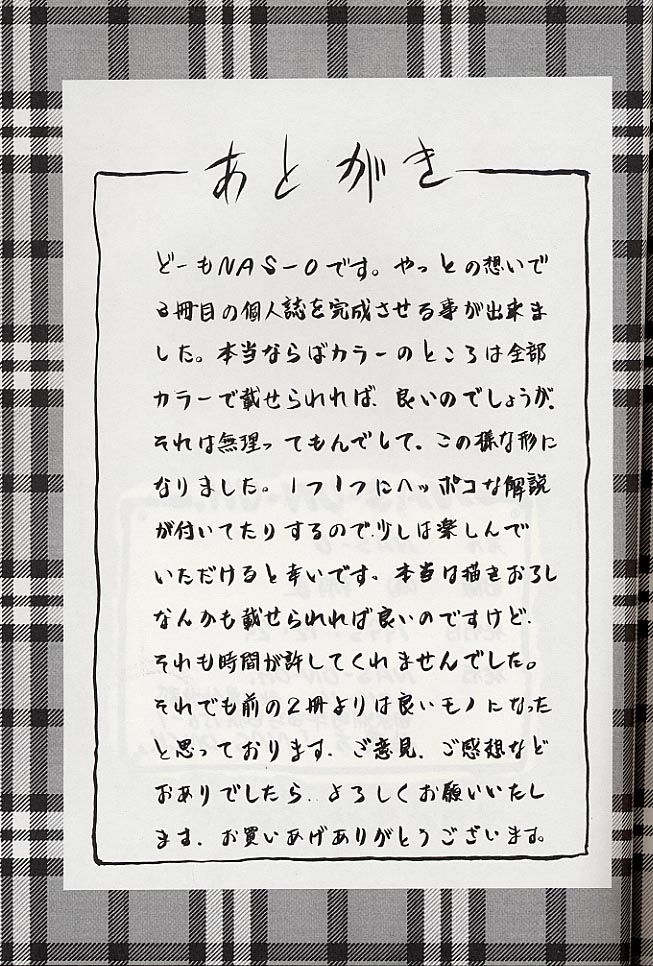 あとがき
どーもNAS-Oです。やっとの想いで
3冊目の個人誌を完成させる事が出来ま
した。本当ならばカラーのところは全部
カラーで載せられれば、良いのでしょうが、
それは無理ってもんでして、この様な形に
なりました。1つ1つにヘッポコな解説
が付いてたりするので、少しは楽しんで
いただけると幸いです。本当は描きおろし
なんかも載せられれば良いのですけど、
それも時間が許してくれませんでした。
それでも前の2冊よりは良いモノになった
と思っております。ご意見、ご感想など
おありでしたら、よろしくお願いいたし
ます。お買いあげありがとうございます。